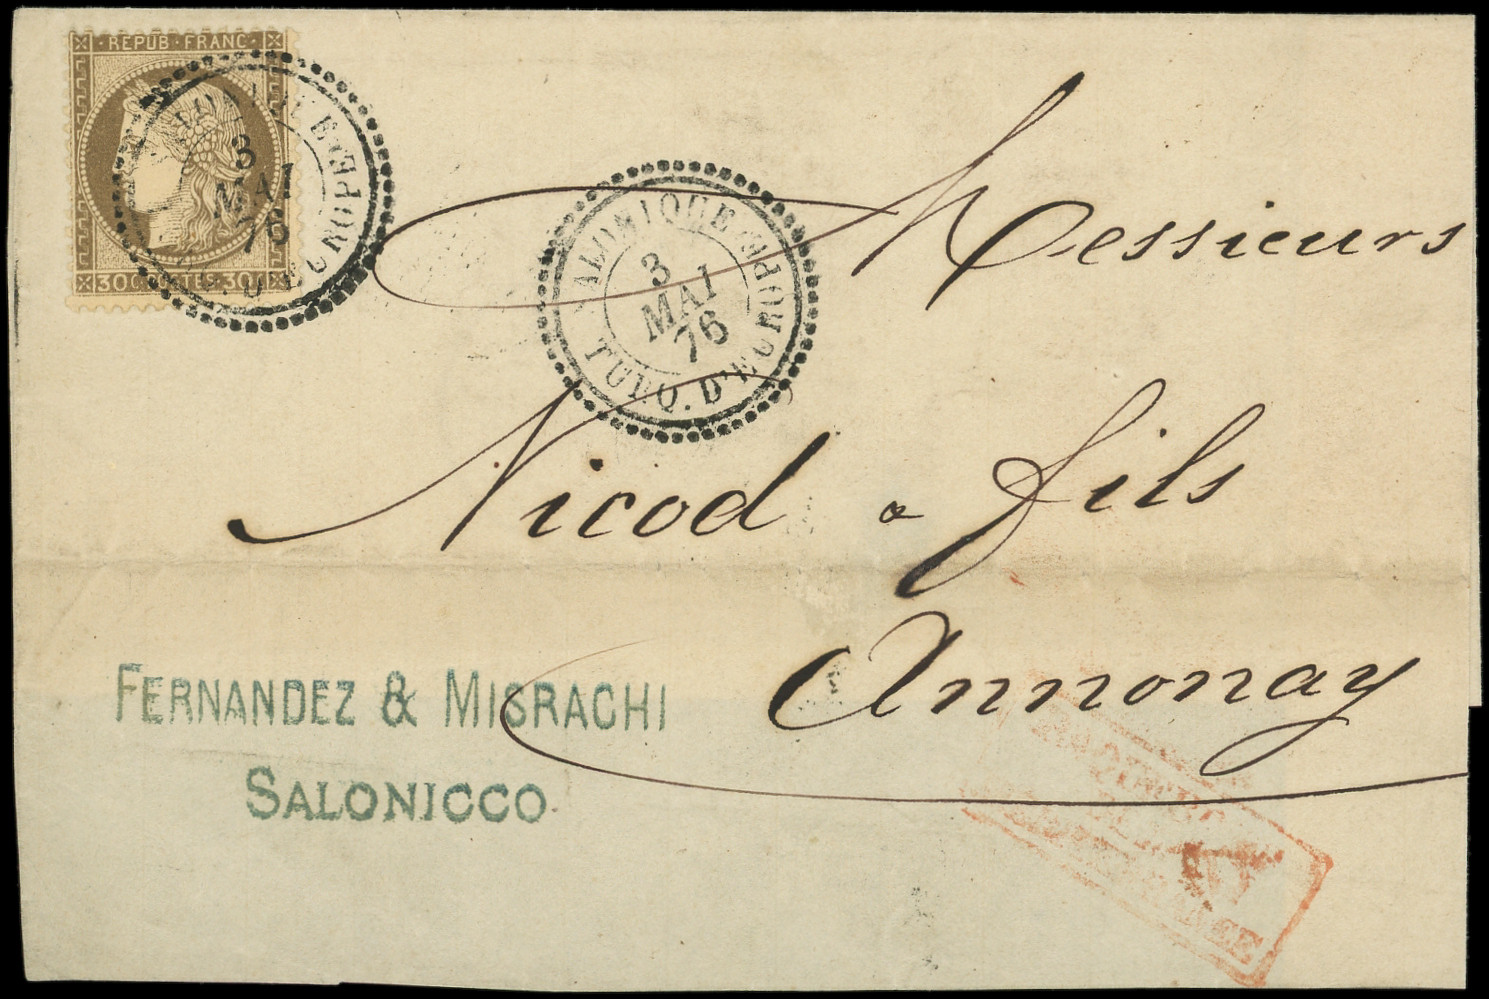 REPUB·FRANC·
30C·POSTES·30C
3
MAI
76
SALONIQUE
3
MAI
76
TURQ. D'EUROPE
Messieurs
Nicod & fils
Annonay
FERNANDEZ & MISRACHI
SALONICCO